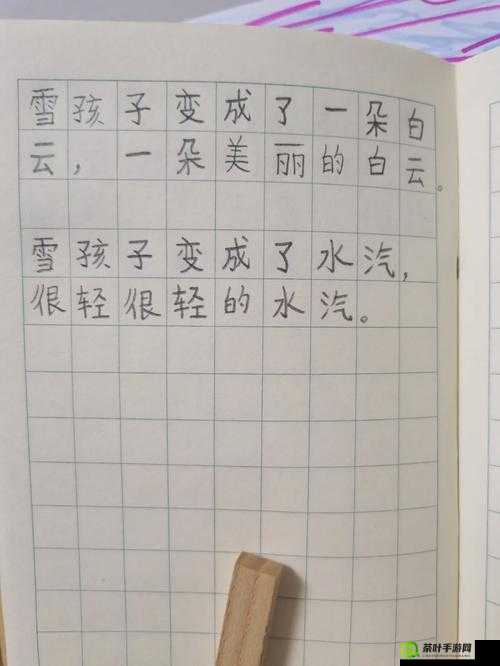 雪孩子变成了一朵白
云，一朵美丽的白云。
雪孩子变成了水汽，
很轻很轻的水汽。
茶叶手游网